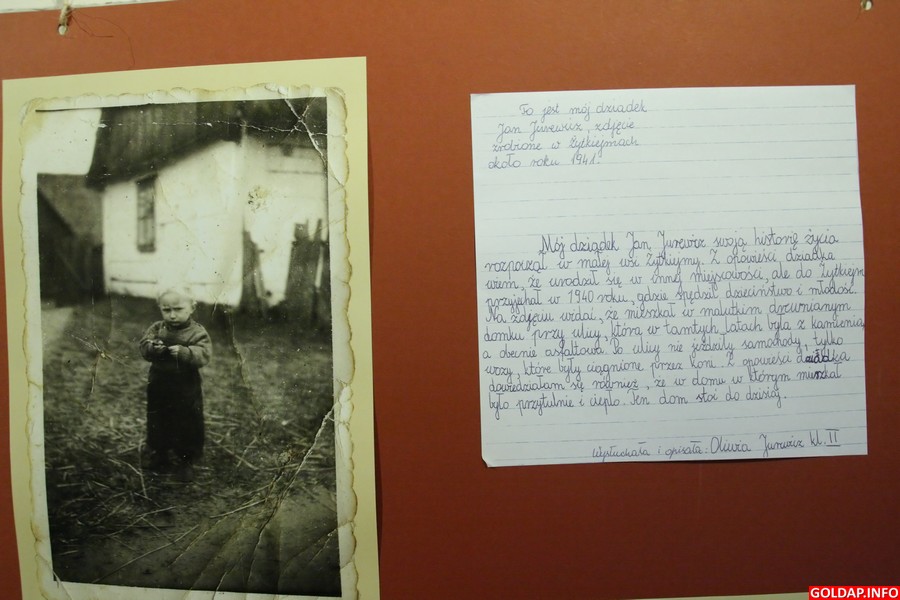 To jest mój dziadek
Jan Jurewicz, zdjęcie
zrobione w Żytkiejmach
około roku 1941.
Mój dziadek Jan Jurewicz swoją historię życia
rozpoczął w małej wsi Żytkiejmy. Z opowieści dziadka
wiem, że urodził się w innej miejscowości, ale do Żytkiejm
przyjechał w 1940 roku, gdzie spędził dzieciństwo i młodość.
Na zdjęciu widać, że mieszkał w malutkim drewnianym
domku przy ulicy, która w tamtych latach była z kamienia,
a obecnie asfaltowa. Po ulicy nie jeździły samochody, tylko
wozy, które były ciągnione przez konie. Z opowieści dziadka
dowiedziałam się również, że w domu w którym mieszkał
było przytulnie i ciepło. Ten dom stoi do dzisiaj.
Wysłuchała i opisała: Oliwia Jurewicz kl. II
GOLDAP.INFO